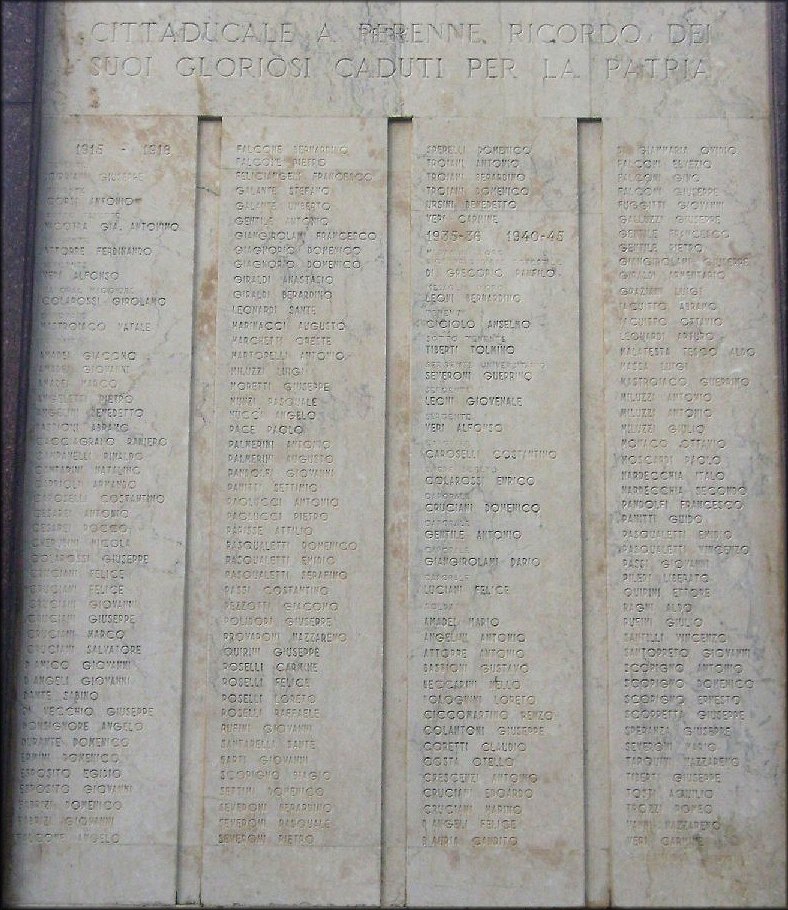 CITTADUCALE A PERENNE RICORDO DEI
SUOI GLORIOSI CADUTI PER LA PATRIA
1915 - 1918
GIUSEPPE
CORSI ANTONIO
ANTONINO
ATTORRE FERDINANDO
VERI ALFONSO
COLAROSSI GIROLAMO
MASTROIACO NATALE
AMADEI GIACOMO
AMADEI GIOVANNI
AMADEI MARCO
ANGELETTI PIETRO
ANGELINI BENEDETTO
BASSIONI ABRAMO
CACCIAGRANO RANIERO
CAMPANELLI RINALDO
CANTARINI NATALINO
CAPRIOLI ARMANDO
CAROSELLI COSTANTINO
CESAREI ANTONIO
CESAREI ROCCO
CHERUBINI NICOLA
COLAROSSI GIUSEPPE
CRUCIANI FELICE
CRUCIANI FELICE
CRUCIANI GIOVANNI
CRUCIANI GIUSEPPE
CRUCIANI MARCO
CRUCIANI SALVATORE
D'AMICO GIOVANNI
D'ANGELI GIOVANNI
DANTE SABINO
DEL VECCHIO GIUSEPPE
MONSIGNORE ANGELO
DURANTE DOMENICO
ERMINI DOMENICO
ESPOSITO EGIDIO
ESPOSITO GIOVANNI
FABRIZI DOMENICO
FABRIZI GIOVANNI
FALCONE ANGELO
FALCONE BERNARDINO
FALCONE PIETRO
FELICIANGELI FRANCESCO
GALANTE STEFANO
GALANTE UMBERTO
GENTILE ANTONIO
GIANGIROLANI FRANCESCO
GIAGNORIO DOMENICO
GIAGNORIO DOMENICO
GIRALDI ANASTASIO
GIRALDI BERARDINO
LEONARDI SANTE
MARINACCI AUGUSTO
MARCHETTI ORESTE
MARTORELLI ANTONIO
MILUZZI LUIGI
MORETTI GIUSEPPE
NUNZI PASQUALE
NUCCI ANGELO
PACE PAOLO
PALMERINI ANTONIO
PALMERINI AUGUSTO
PANDOLFI GIOVANNI
PANITTI SETTIMIO
PAOLUCCI ANTONIO
PAOLUCCI PIETRO
PARISSE ATTILIO
PASQUALETTI DOMENICO
PASQUALETTI EMIDIO
PASQUALETTI SERAFINO
PASSI COSTANTINO
PEZZOTTI GIACOMO
POLIDORI GIUSEPPE
PROVARONI NAZZARENO
QUIRINI GIUSEPPE
ROSELLI CARMINE
ROSELLI FELICE
ROSELLI LORETO
ROSELLI RAFFAELE
RUFINI GIOVANNI
SANTARELLI SANTE
SARTI GIOVANNI
SCOPIGNO BIAGIO
SETTIMI DOMENICO
SEVERONI BERARDINO
SEVERONI PASQUALE
SEVERONI PIETRO
SPERELLI DOMENICO
TROIANI ANTONIO
TROIANI BERARDINO
TROIANI DOMENICO
URSINI BENEDETTO
VERI CARMINE
1935-36 1940-45
DI GREGORIO PANFILO
LEONI BERNARDINO
CICIOLO ANSELMO
TIBERTI TOLMINO
SEVERONI GUERRINO
LEONI GIOVENALE
SERGENTE
VERI ALFONSO
CAROSELLI COSTANTINO
COLAROSSI ENRICO
CAPORALE
CRUCIANI DOMENICO
CAPORALE
GENTILE ANTONIO
CAPORALE
GIANGIROLAMI DARIO
CAPORALE
LUCIANI FELICE
AMADEI MARIO
ANGELINI ANTONIO
ATTORRE ANTONIO
BASSIONI GUSTAVO
BECCARINI NELLO
BOLOGNINI LORETO
CICCOMARTINO RENZO
COLANTONI GIUSEPPE
CORETTI CLAUDIO
COSTA OTELLO
CRESCENZI ANTONINO
CRUCIANI EDOARDO
CRUCIANI MARINO
D'ANGELI FELICE
D'AURIA CANDITO
DI GIAMMARIA OVIDIO
FALCONI ELVEZIO
FALCONI GINO
FALCONI GIUSEPPE
FUGGITTI GIOVANNI
GALLUZZI GIUSEPPE
GENTILE FRANCESCO
GENTILE PIETRO
GIANGIROLAMI GIUSEPPE
GIRALDI ARMENTARIO
GRAZIANI LUIGI
IACUITTO ABRAMO
IACUITTO OTTAVIO
LEONARDI ARTURO
MALATESTA TERSO ALDO
MASSA LUIGI
MASTROIACO GUERRINO
MILUZZI ANTONIO
MILUZZI ANTONIO
MILUZZI GIULIO
MONACO OTTAVIO
MOSCARDI PAOLO
NARDECCHIA ITALO
NARDECCHIA SECONDO
PANDOLFI FRANCESCO
PANITTI GUIDO
PASQUALETTI EMIDIO
PASQUALETTI VINCENZO
PASSI GIOVANNI
PILERI LIBERATO
QUIRINI ETTORE
RAGNI ALDO
RUFINI GIULIO
SANTILLI VINCENZO
SANTOPRETO GIOVANNI
SCOPIGNO ANTONIO
SCOPIGNO DOMENICO
SCOPIGNO ERNESTO
SCORRETTA GIUSEPPE
SPERANZA GIUSEPPE
SEVERONI MARIO
TARQUINI NAZZARENO
TIBERTI GIUSEPPE
TOSTI ACHILLIO
TROZZI ROMEO
VANNI NAZZARENO
VERI CARMINE